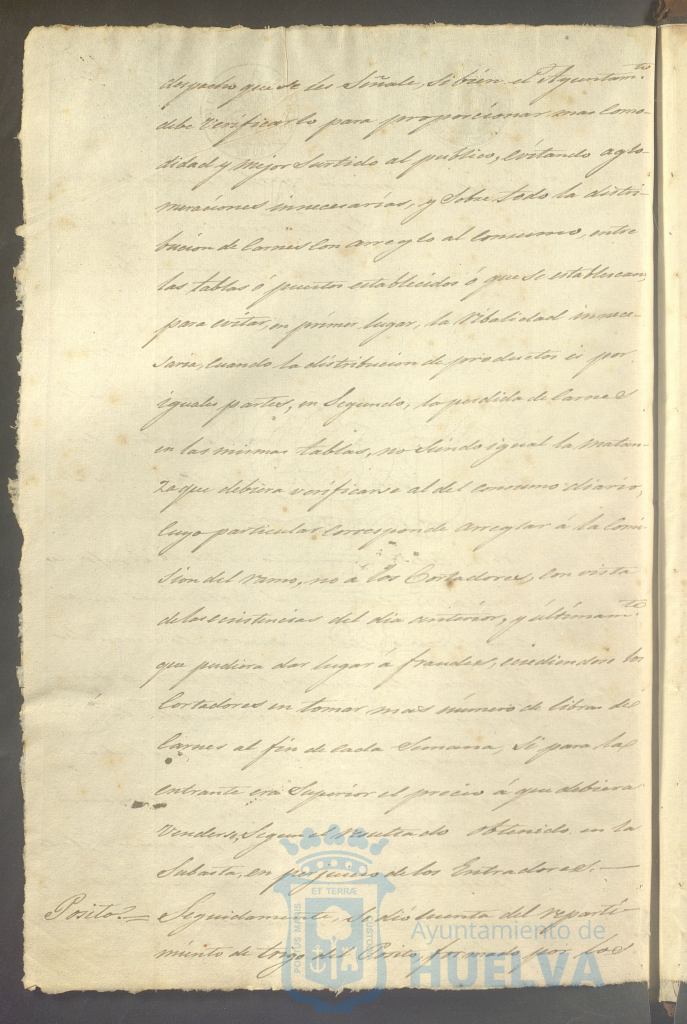 despacho que se les Señale, si bien el Ayuntam.to
debe Verificarlo para proporcionar mas Como-
didad y mejor Surtido al publico, evitando aglo-
meraciones innecesarias, y Sobre todo la distri-
bucion de Carnes con arreglo al Consumo, entre
las tablas ó puestos establecidos ó que se establezcan,
para evitar, en primer lugar, la Ribalidad innece-
saria, cuando la distribucion de productos es por
iguales partes, en Segundo, la perdida de Carnes
en las mismas tablas, no siendo igual la matan-
za que debiera verificarse al del consumo diario,
cuyo particular corresponde arreglar á la Comi-
sion del ramo, no á los Cortadores, con vista
de las existencias del dia anterior, y últimam.te
que pudiera dar lugar á fraudes, escediendose los
Cortadores en tomar mas número de libras de
Carnes al fin de cada Semana, si para la
entrante era Superior el precio á que debiera
venderse, Segun el resultado obtenido en la
Subasta, en perjuicio de los Entradores.—
Posito= Seguidamente, se dió cuenta del reparti-
miento de trigo del Posito, formado por los
PORTUS MARIS ET TERRÆ CUSTODIA
Ayuntamiento de
HUELVA